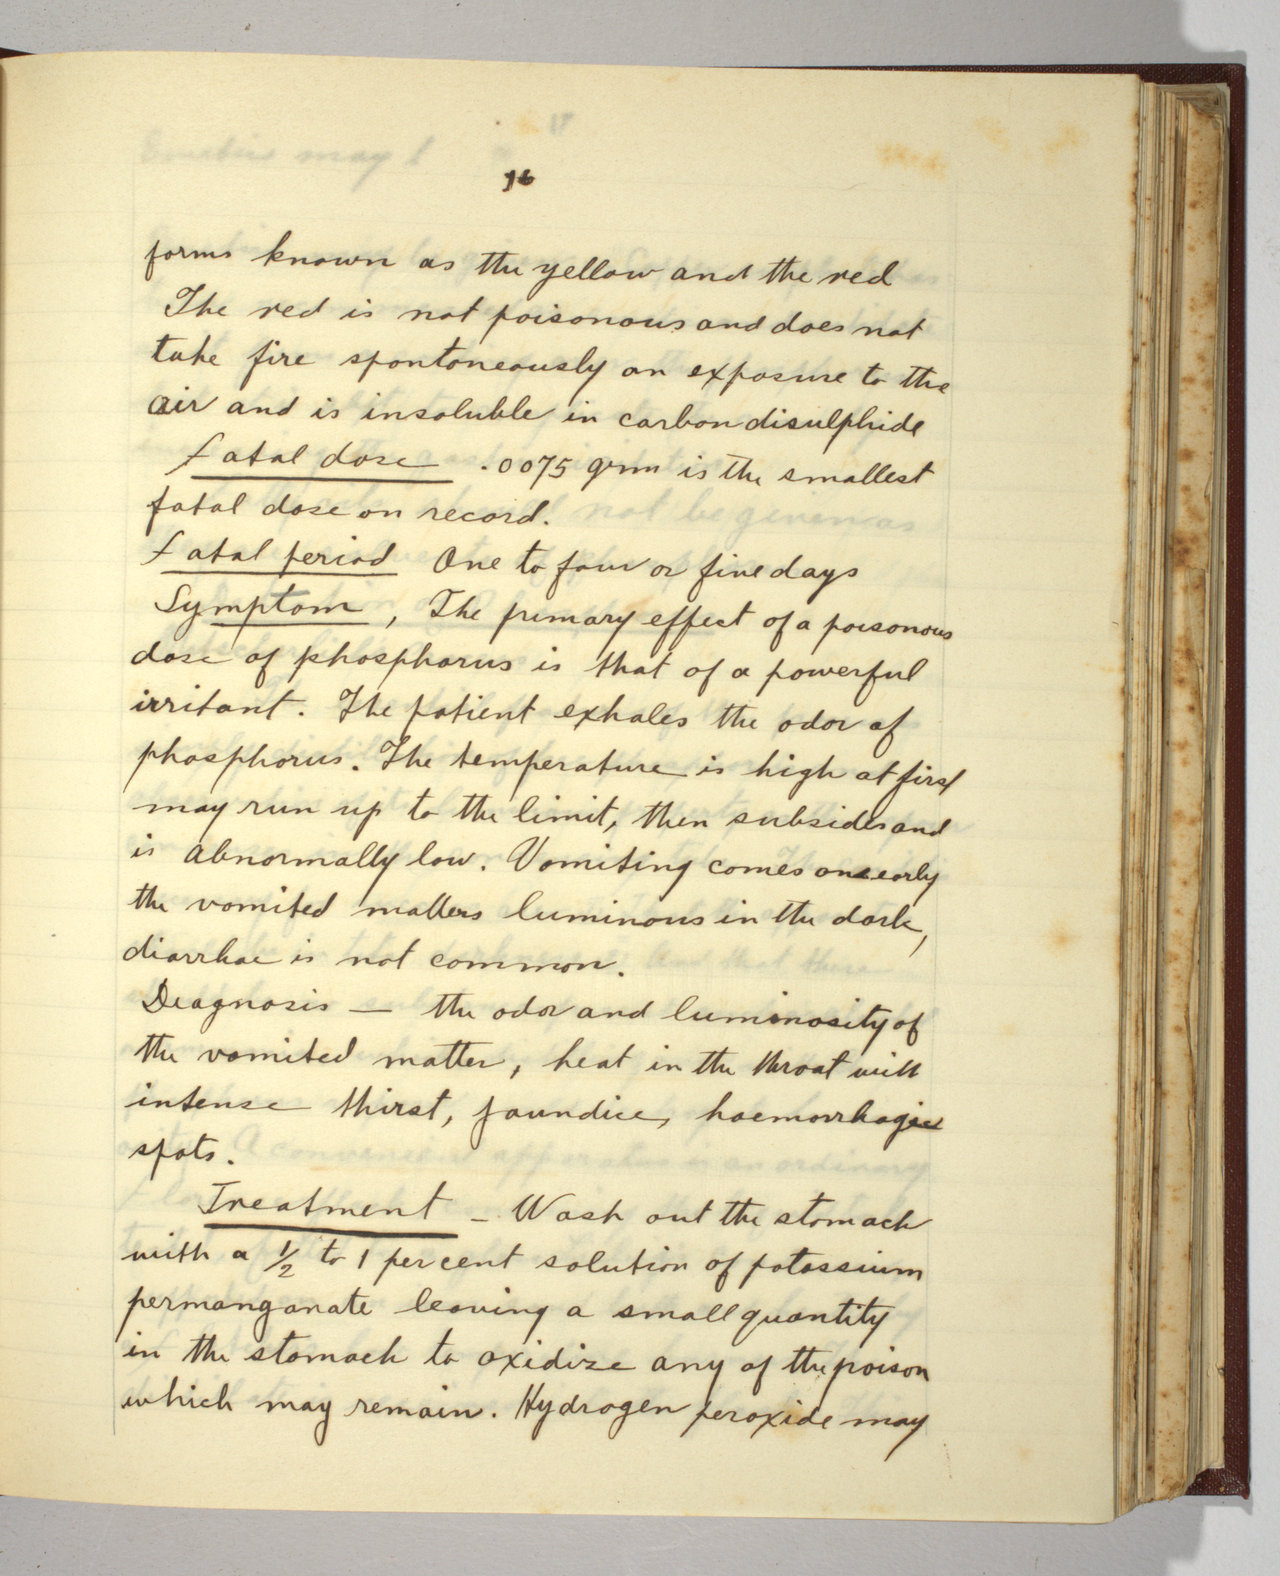 16
forms known as the yellow and the red
The red is not poisonous and does not
take fire spontaneously on exposure to the
air and is insoluble in carbon disulphide
Fatal dose .0075 grm is the smallest
fatal dose on record.
Fatal period One to four or five days
Symptom, The primary effect of a poisonous
dose of phosphorus is that of a powerful
irritant. The patient exhales the odor of
phosphorus. The temperature is high at first
may run up to the limit, then subsides and
is abnormally low. Vomiting comes on early
the vomited matters luminous in the dark,
diarrhae is not common.
Diagnosis — the odor and luminosity of
the vomited matter, heat in the throat with
intense thirst, jaundice, haemorrhagic
spots.
Treatment – Wash out the stomach
with a 1/2 to 1 per cent solution of potassium
permanganate leaving a small quantity
in the stomach to oxidize any of the poison
which may remain. Hydrogen peroxide may